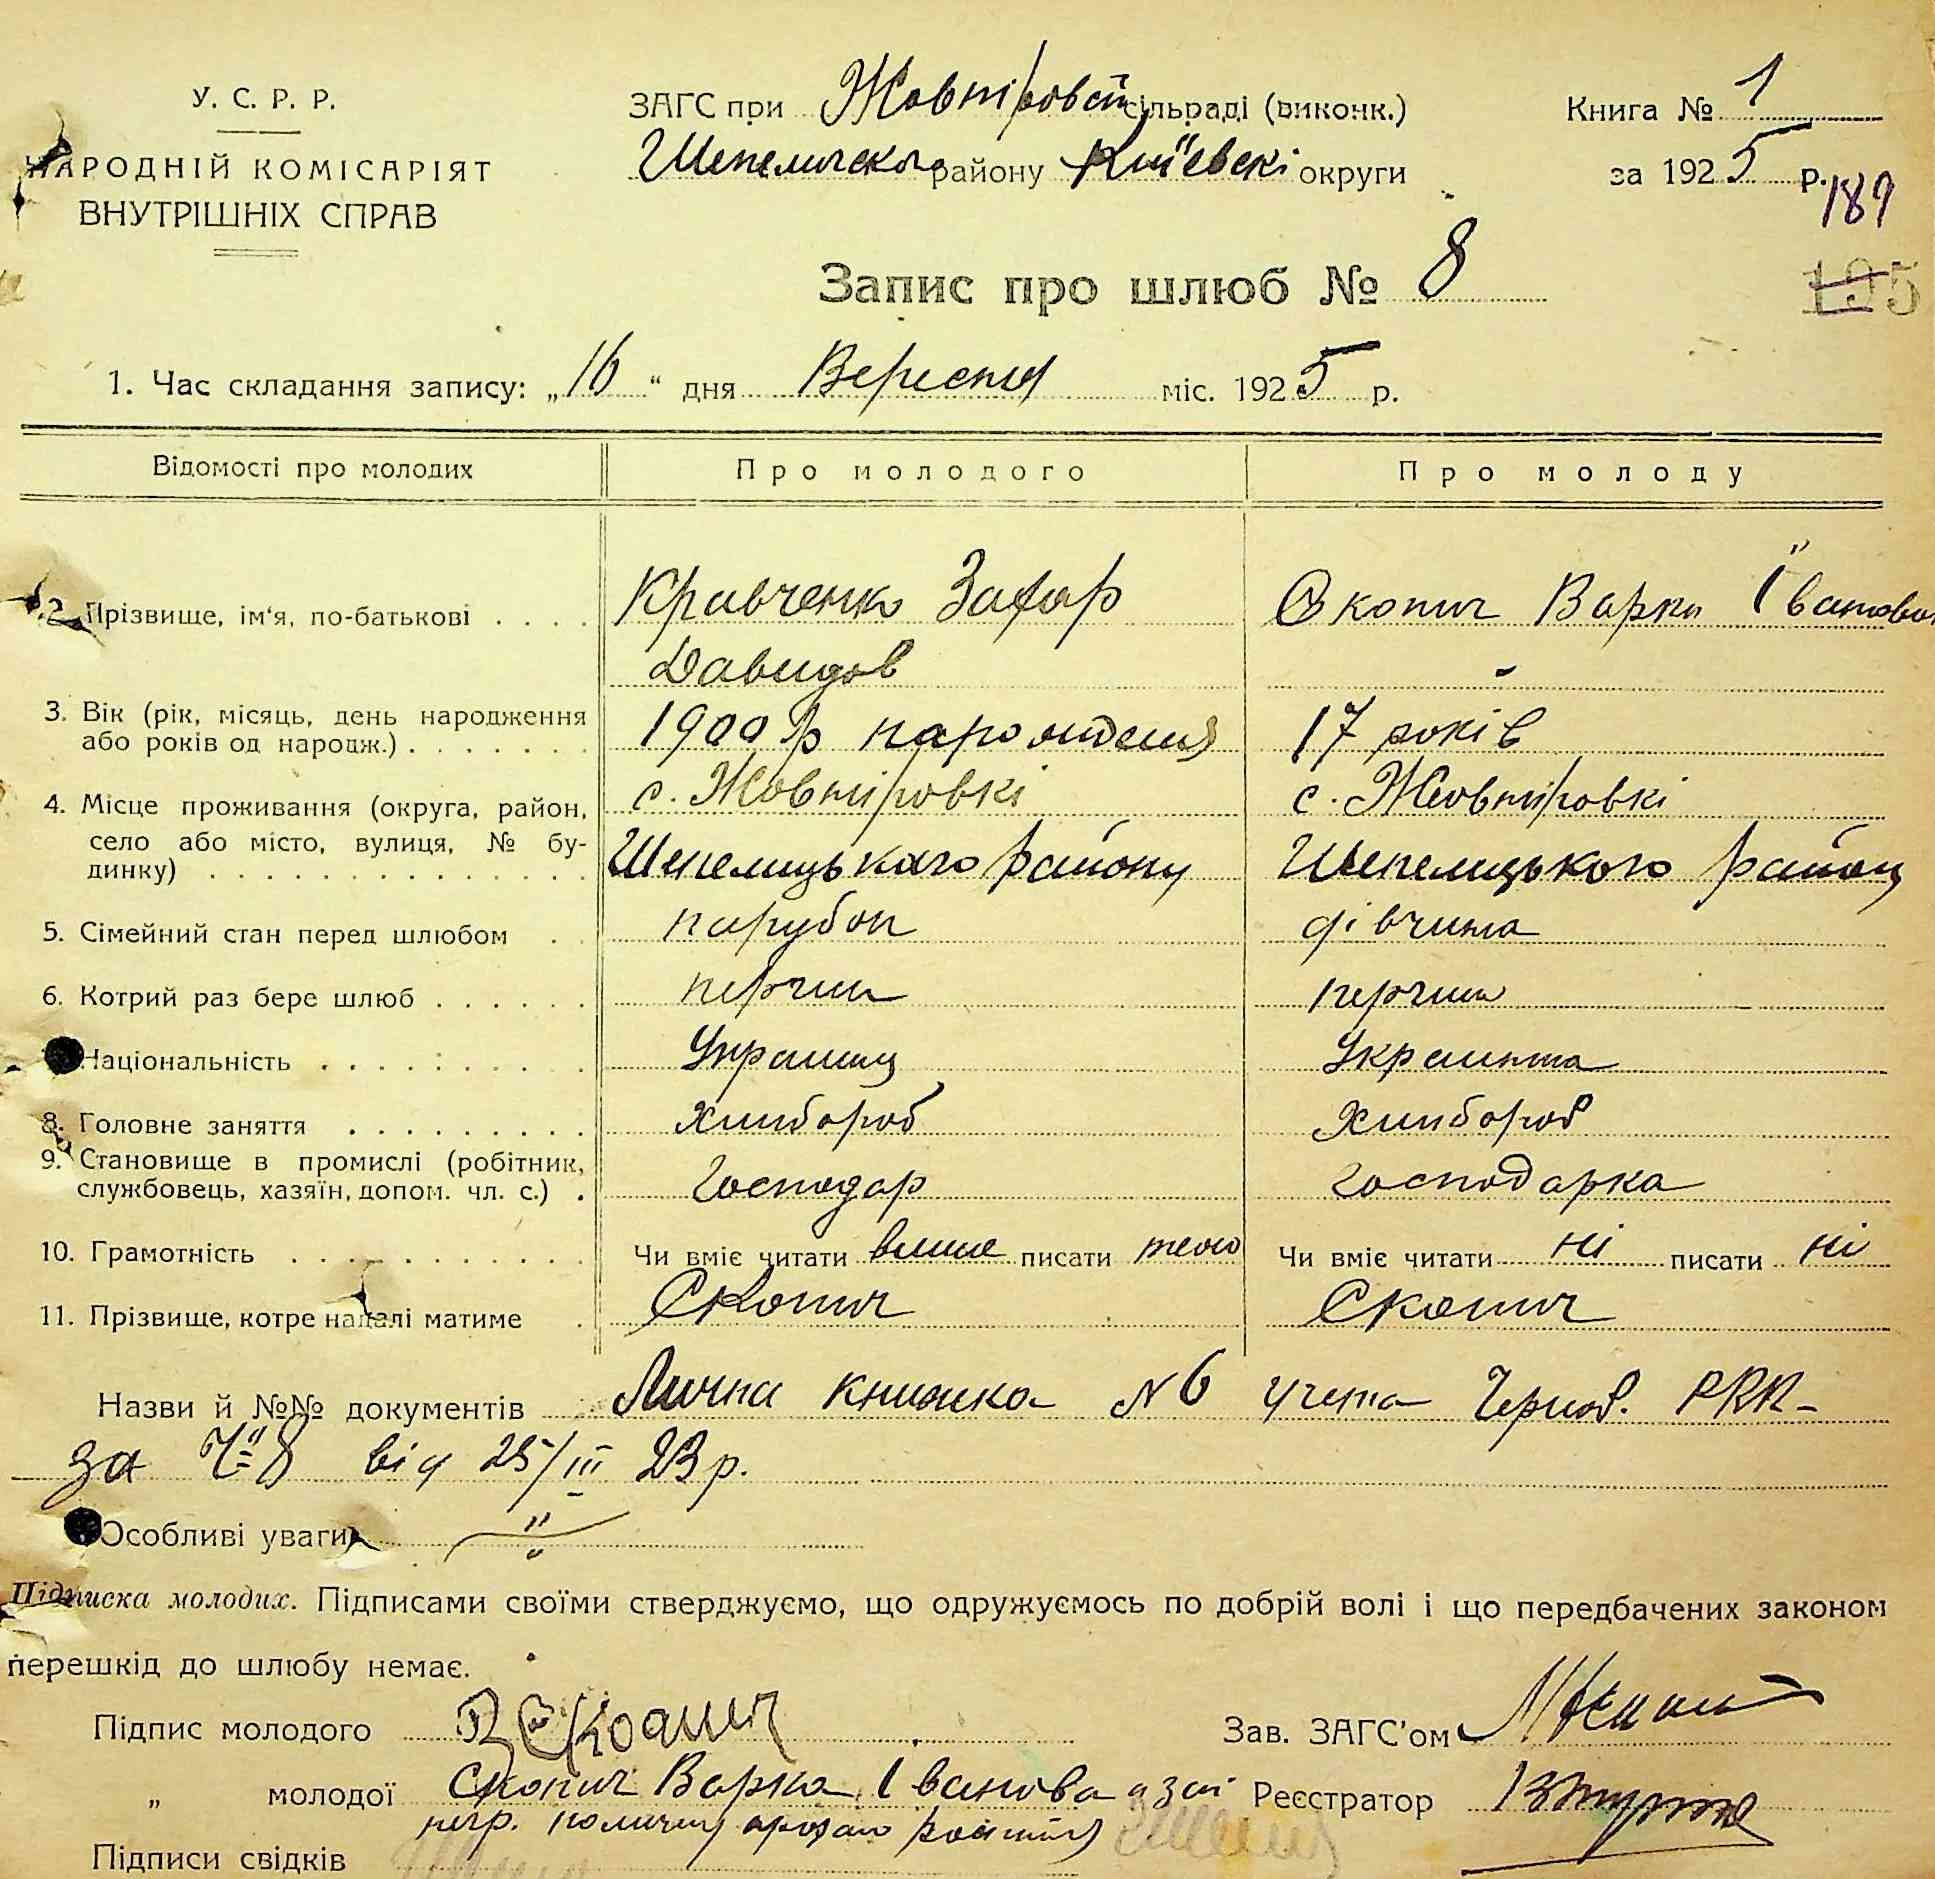 У. С. Р. Р.
НАРОДНІЙ КОМІСАРІЯТ
ВНУТРІШНІХ СПРАВ
ЗАГС при Жовніровск сільраді (виконк.)
Шепеличско району Київскі округи
Книга № 1
за 1925 р.
189
195
Запис про шлюб № 8
1. Час складання запису: „16“ дня Вересня міс. 1925 р.
Відомості про молодих Про молодого Про молоду
2. Прізвище, ім‘я, по-батькові Кравченко Захар Скопич Варка Іванова
Давидов
3. Вік (рік, місяць, день народження 1900 р народженя 17 років
або років од народж.)
4. Місце проживання (округа, район, с. Жовніровкі с. Жовніровкі
село або місто, вулиця, № бу- Шепелицького району Шепелицького району
динку)
5. Сімейний стан перед шлюбом парубок дівчина
6. Котрий раз бере шлюб перший перший
Національність Украинец Украинка
8. Головне заняття хлибороб хлибороб
9. Становище в промислі (робітник,
службовець, хазяїн, допом. чл. с.) Господар господарка
10. Грамотність Чи вміє читати вмие писати тоже Чи вміє читати ні писати ні
11. Прізвище, котре надалі матиме Скопич Скопич
Назви й №№ документів Лична книжка № 6 учета Черноб. РВК
за Ч 8 від 25/III 23 р.
Особливі уваги
Підписка молодих. Підписами своїми стверджуємо, що одружуємось по добрій волі і що передбачених законом
перешкід до шлюбу немає.
Підпис молодого Зав. ЗАГС'ом
„ молодої Скопич Варка Іванова а за Реєстратор
негр.
Підписи свідків